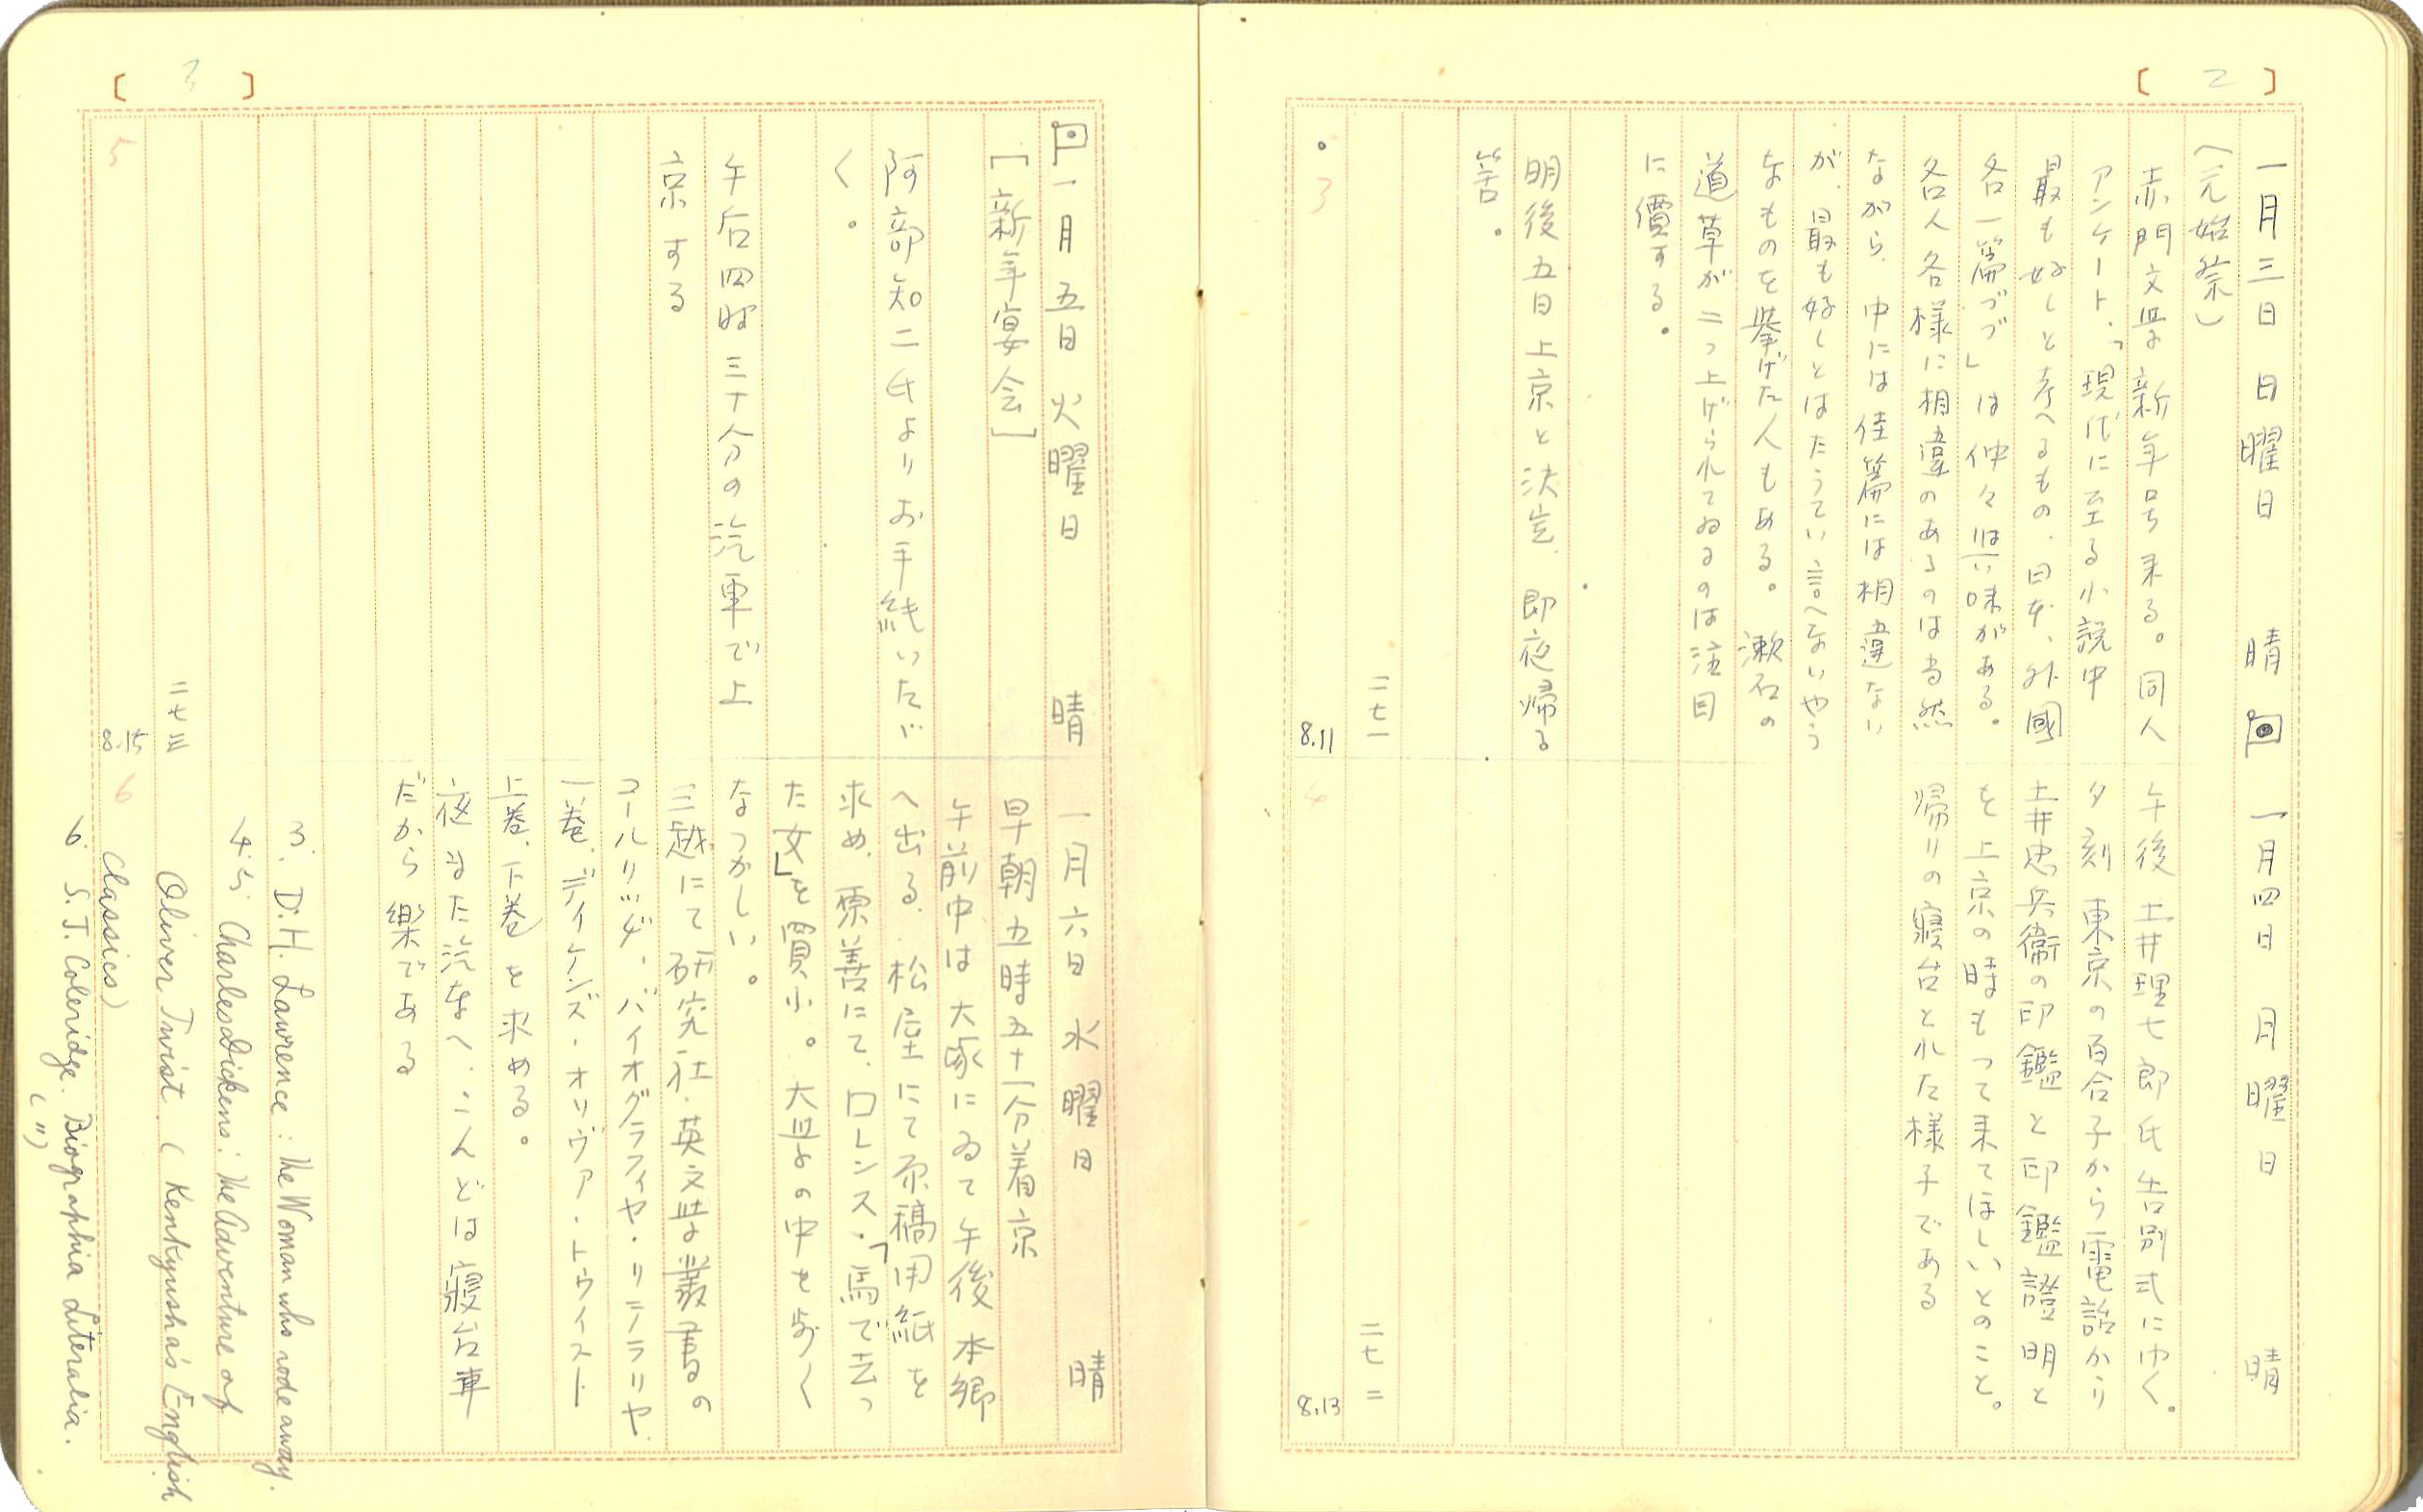 [ 2 ]
一月三日 日曜日 晴
(元始祭)
赤門文学新年号来る。同人
アンケート、「現代に至る小説中
最も好しと考へるもの、日本、外國
各一篇づゝ」は仲々興味がある。
各人各様に相違のあるのは当然
ながら、中には佳篇には相違ない
が、最も好しとはたうてい言へないやう
なものを挙げた人もある。漱石の
道草が二つ上げられてゐるのは注目
に價する。
明後五日上京と決定、即夜帰る
筈。
二七一
3
8.11
一月四日 月曜日 晴
午後 土井理七郎氏告別式にゆく。
夕刻 東京の百合子から電話かゝり
土井忠兵衛の印鑑と印鑑證明と
を上京の時もって来てほしいとのこと。
帰りの寝台とれた様子である
二七二
4
8.13
[ 3 ]
一月五日 火曜日 晴
[新年宴会]
阿部知二氏よりお手紙いたゞ
く。
午后四時三十分の汽車で上
京する
二七三
5
8.15
一月六日 水曜日 晴
早朝五時五十一分着京
午前中は大塚にゐて午後本郷
へ出る、松屋にて原稿用紙を
求め、原善にて、ロレンス・「馬で去っ
た女」を買ふ。大学の中を歩く
なつかしい。
三越にて研究社・英文学叢書の
コールリッヂ、バイオグラフィヤ・リテラリヤ
一巻、ディケンズ・オリヴァ・トウイスト
上巻、下巻を求める。
夜 また汽車へ、こんどは寝台車
だから樂である
3. D.H. Lawrence : The Woman who rode away.
4.5. Charles Dickens : The Adventure of
Oliver Twist. ( Kenkyusha's English
Classics)
6
6. S.T. Coleridge. Biographia Literalia.
( 〃 )